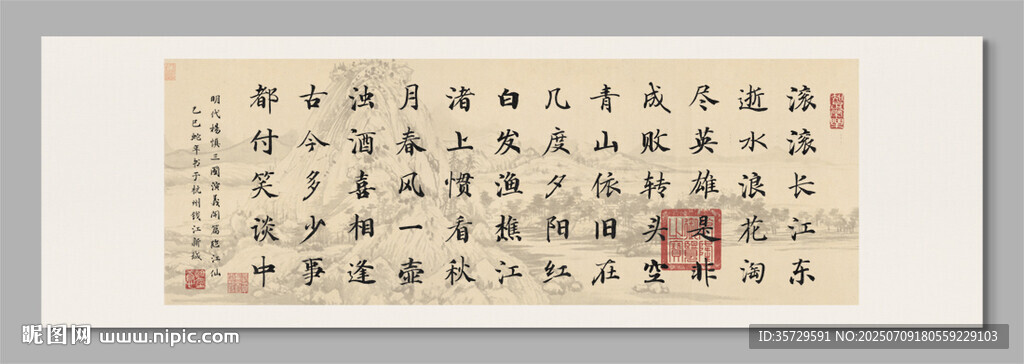 滚滚长江东
逝水浪花淘
尽英雄是非
成败转头空
青山依旧在
几度夕阳红
白发渔樵江
渚上惯看秋
月春风一壶
浊酒喜相逢
古今多少事
都付笑谈中
明代楊慎三國演义開篇臨江仙
乙巳蛇年书于杭州钱江新城
昵图网 www.nipic.com
ID:35729591 NO:20250709180559229103